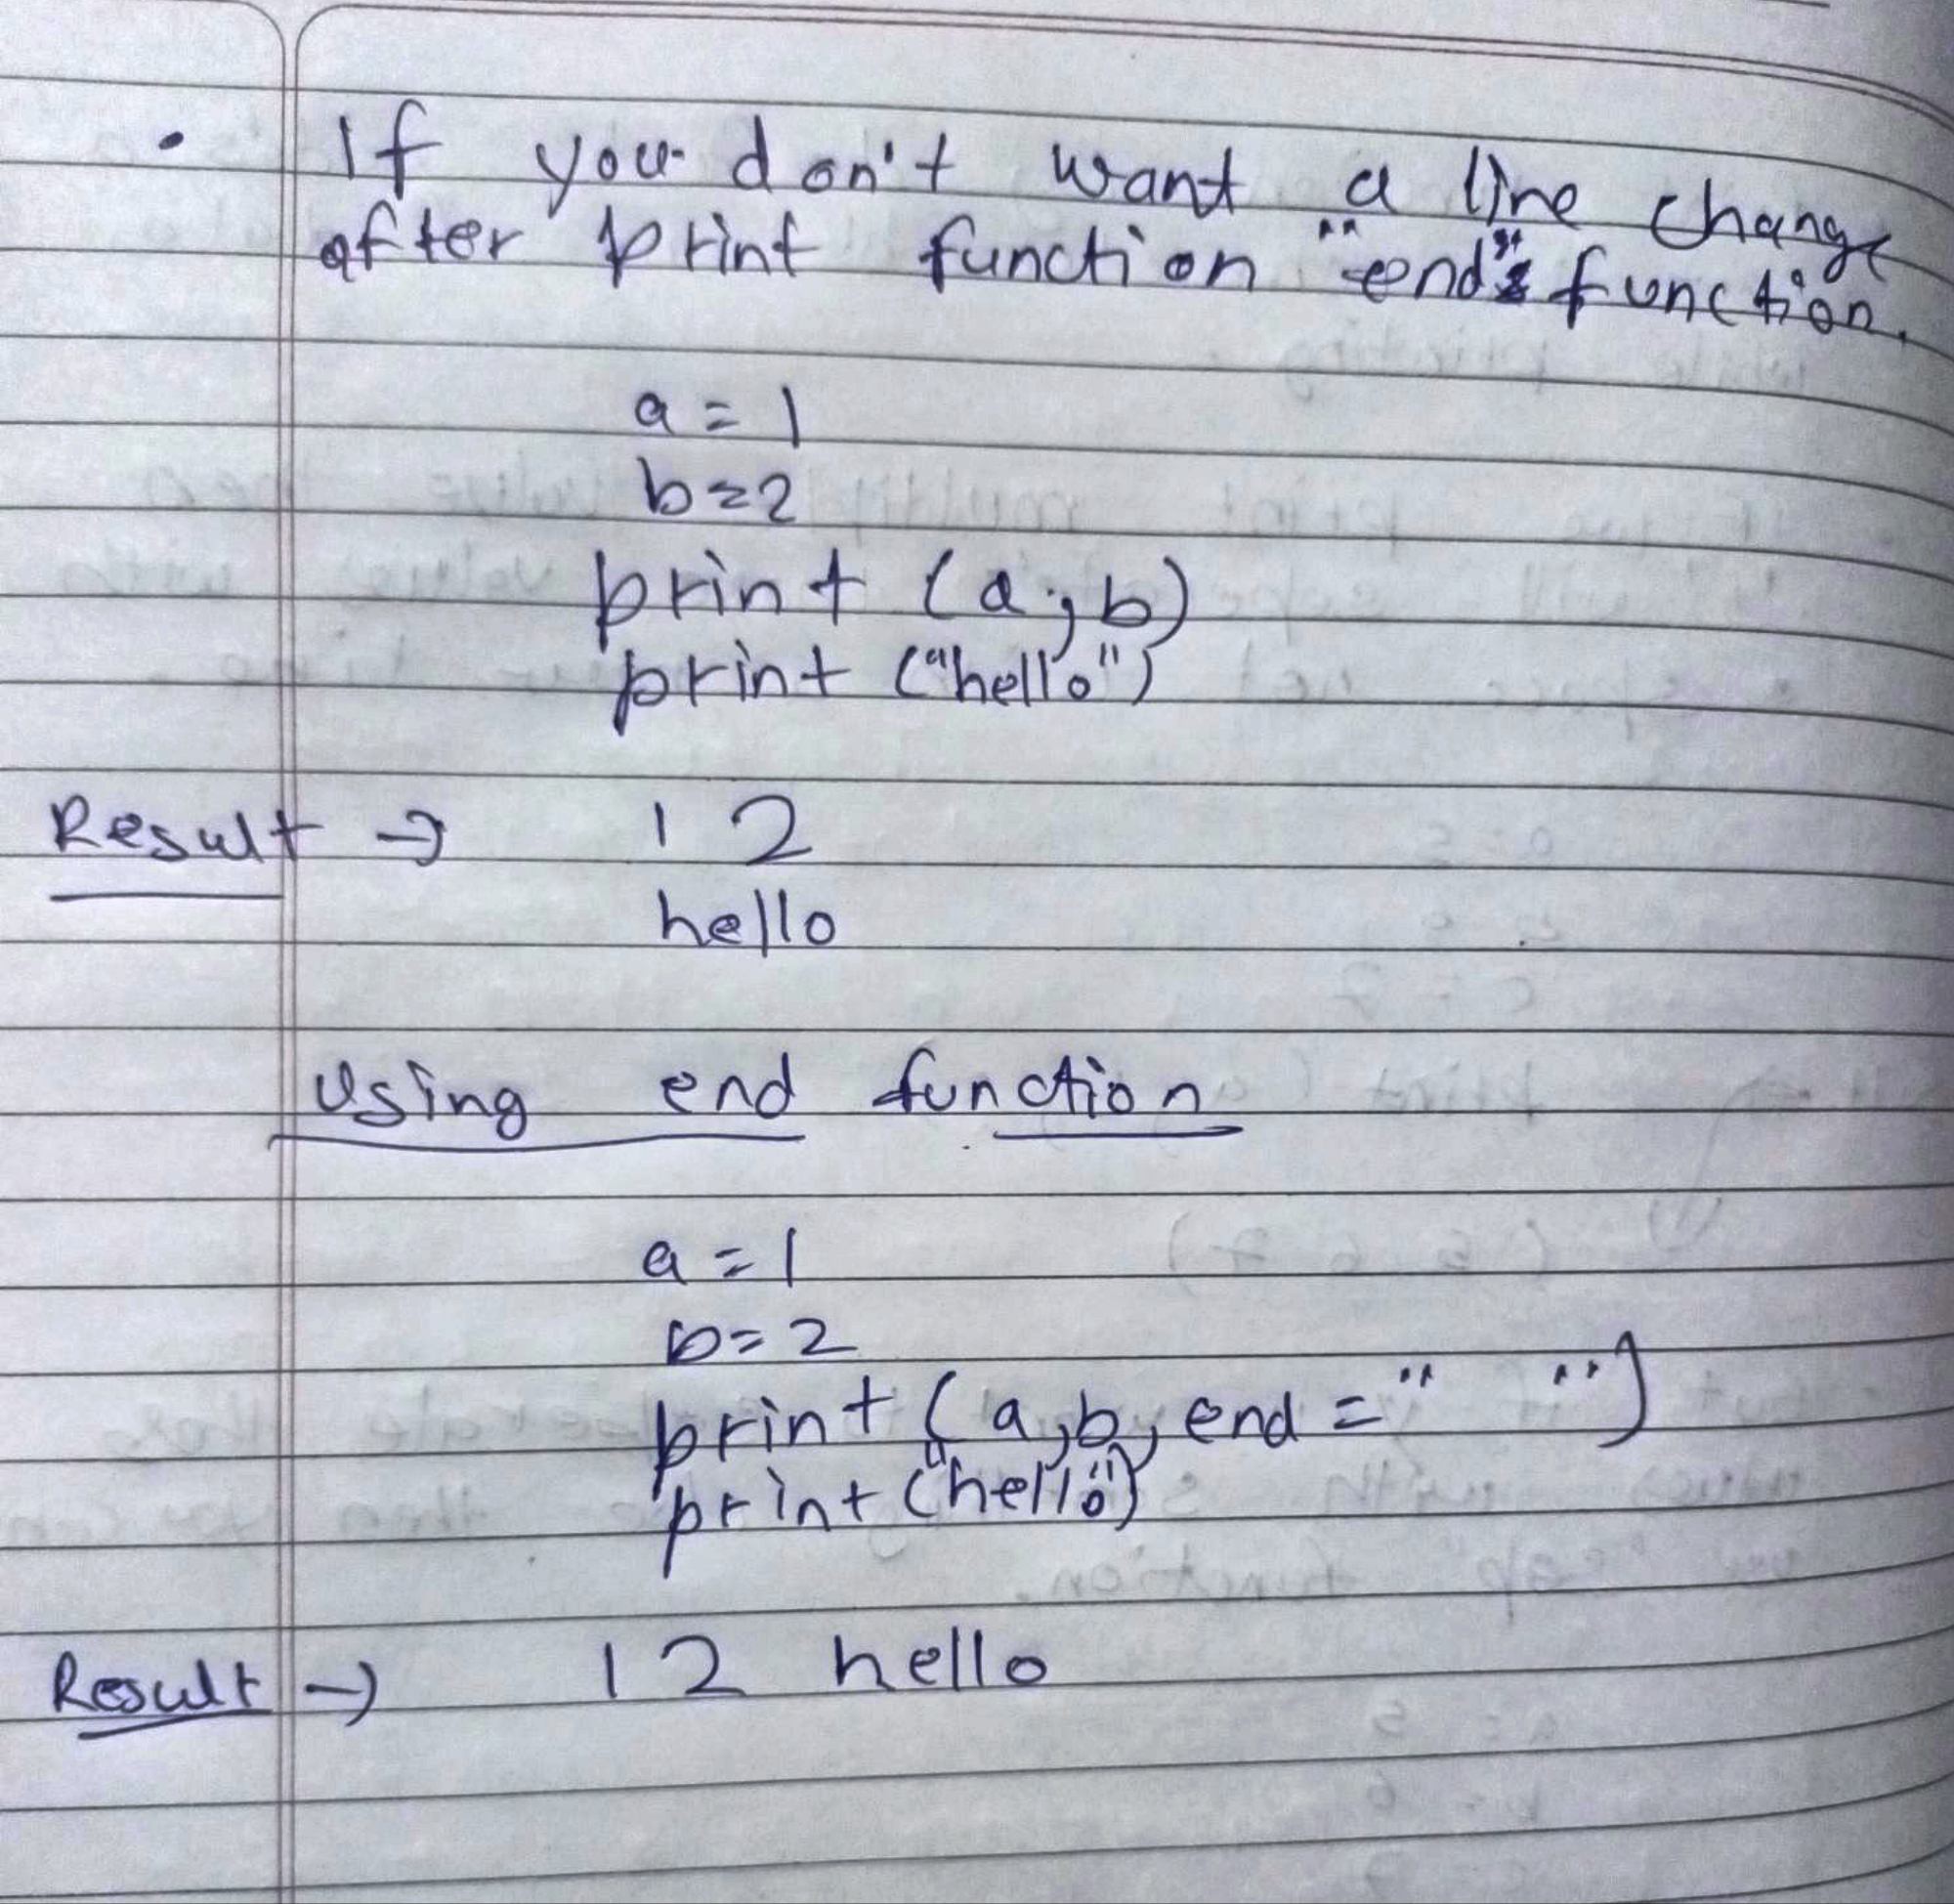 • If you don't want a line change
after print function "end" function.
a = 1
b = 2
print (a, b)
print ("hello")
Result → 1 2
hello
Using end function
a = 1
b = 2
print (a, b, end = " ")
print ("hello")
Result → 1 2 hello